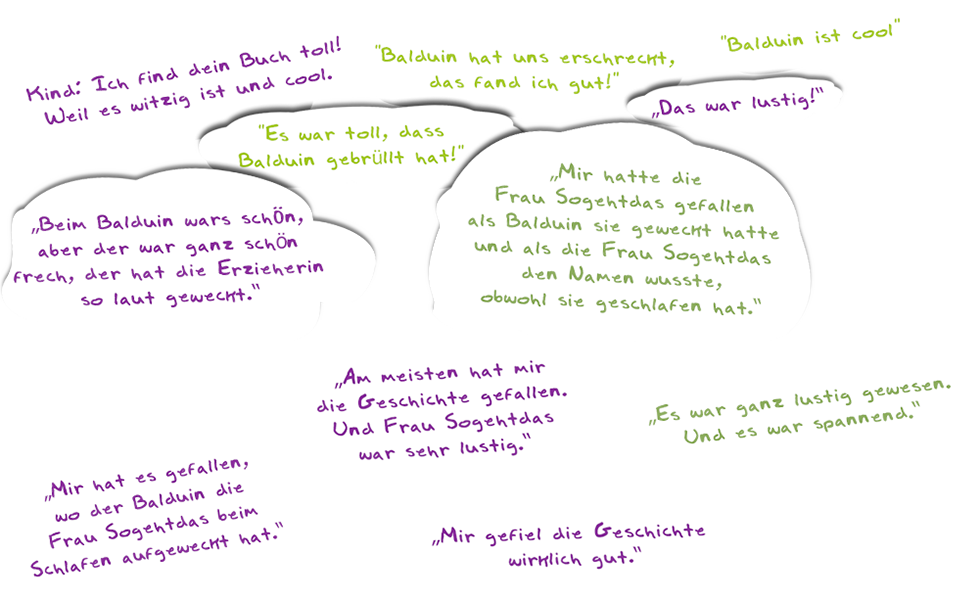 Kind: Ich find dein Buch toll!
Weil es witzig ist und cool.
"Balduin hat uns erschreckt,
das fand ich gut!"
"Balduin ist cool"
„Das war lustig!“
"Es war toll, dass
Balduin gebrüllt hat!"
„Mir hatte die
Frau Sogehtdas gefallen
als Balduin sie geweckt hatte
und als die Frau Sogehtdas
den Namen wusste,
obwohl sie geschlafen hat.“
„Beim Balduin wars schÖn,
aber der war ganz schÖn
frech, der hat die Erzieherin
so laut geweckt.“
„Am meisten hat mir
die Geschichte gefallen.
Und Frau Sogehtdas
war sehr lustig.“
„Es war ganz lustig gewesen.
Und es war spannend.“
„Mir hat es gefallen,
wo der Balduin die
Frau Sogehtdas beim
Schlafen aufgeweckt hat.“
„Mir gefiel die Geschichte
wirklich gut.“